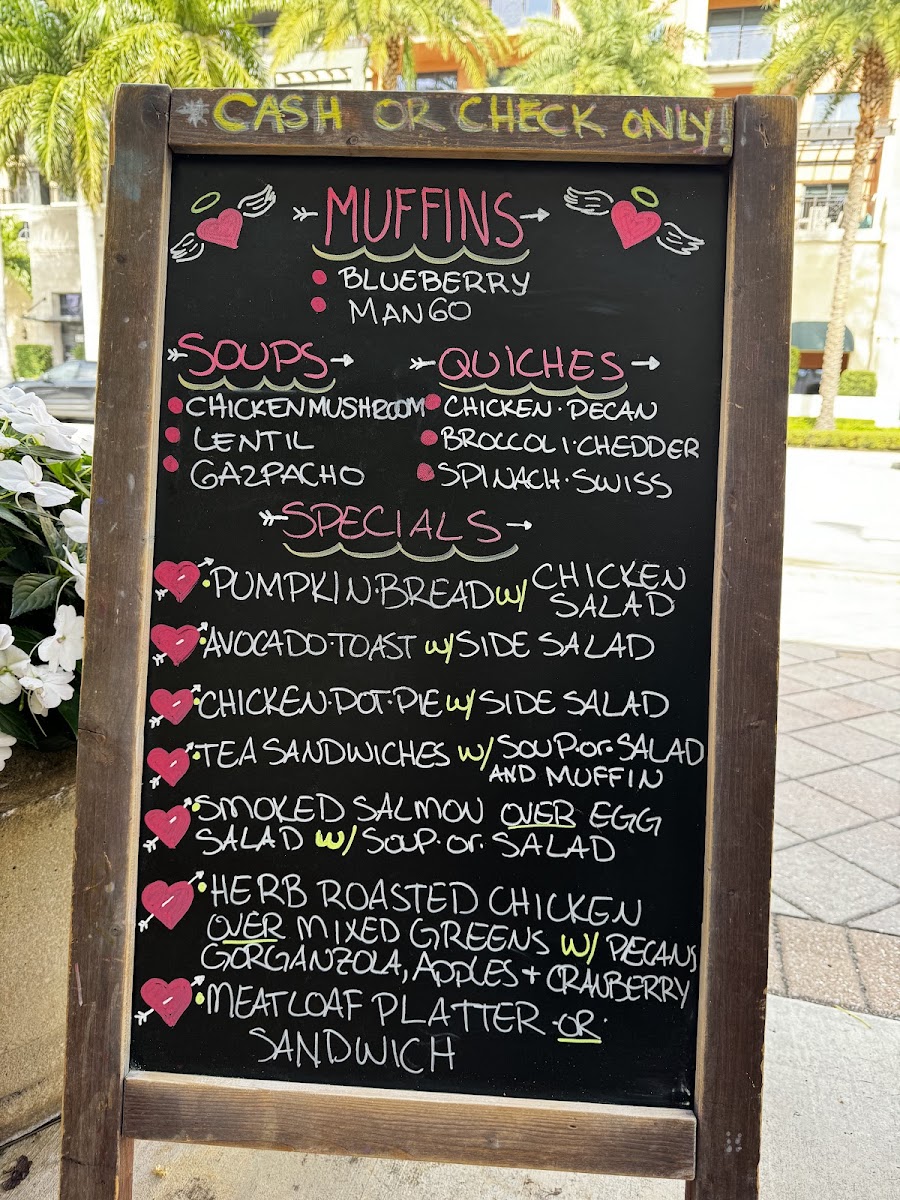 *CASH OR CHECK ONLY!
MUFFINS
BLUEBERRY
MANGO
SOUPS
CHICKEN MUSHROOM
LENTIL
GAZPACHO
QUICHES
CHICKEN·PECAN
BROCCOLI·CHEDDER
SPINACH·SWISS
SPECIALS
PUMPKIN·BREAD w/ CHICKEN
SALAD
AVOCADO·TOAST w/ SIDE SALAD
CHICKEN·POT·PIE w/ SIDE SALAD
TEA SANDWICHES w/ SOUP·or·SALAD
AND MUFFIN
SMOKED SALMON OVER EGG
SALAD w/ SOUP·or·SALAD
HERB ROASTED CHICKEN
OVER MIXED GREENS w/ PECANS
GORGANZOLA, APPLES + CRANBERRY
MEATLOAF PLATTER·OR·
SANDWICH